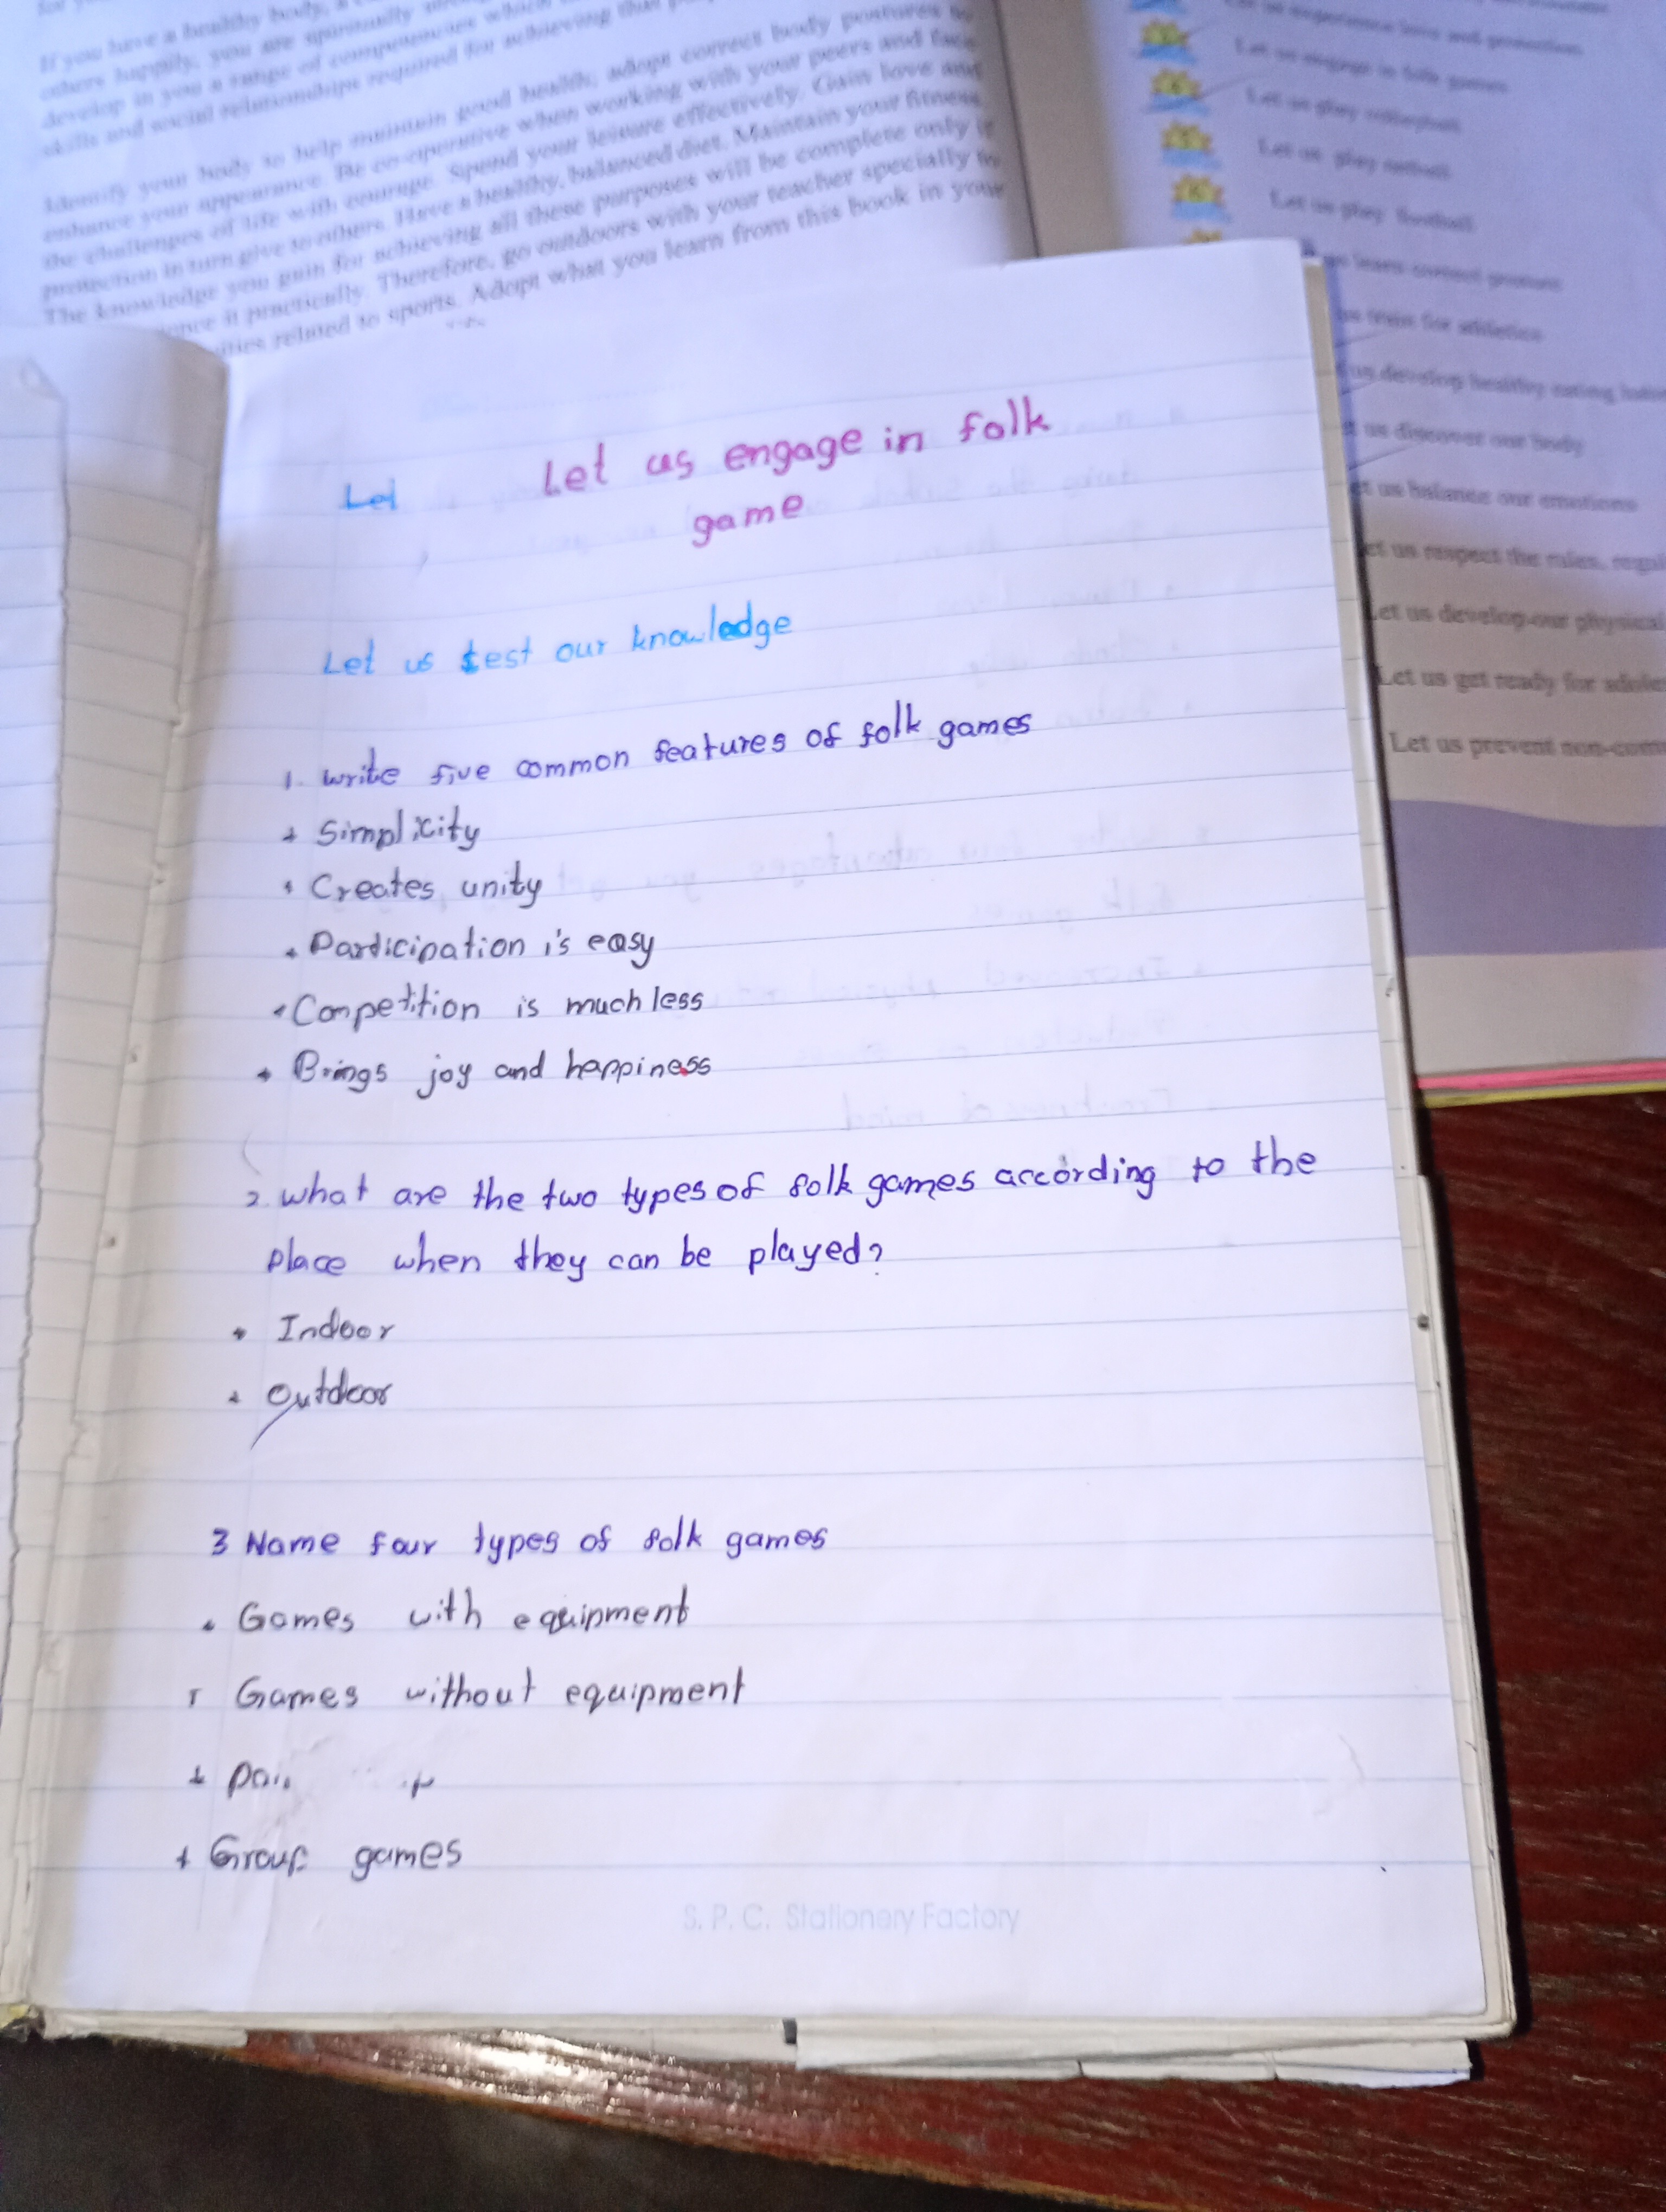 If you have a healthy body,
others happily, you are spiritually
develop in you a range of competencies which
skills and social relationships required for achieving that
Identify your body to help maintain good health, adopt correct body postures to
enhance your appearance. Be co-operative when working with your peers and face
the challenges of life with courage. Spend your leisure effectively. Gain love and
protection in turn give to others. Have a healthy, balanced diet. Maintain your fitness.
The knowledge you gain for achieving all these purposes will be complete only if
it practically. Therefore, go outdoors with your teacher specially in
related to sports. Adopt what you learn from this book in your
Let us experience love and protection
Let us engage in folk games
Let us play volleyball
Let us play netball
Let us play football
us learn correct posture
us train for athletics
us develop healthy eating
us discover our body
us balance our emotions
us respect the rules,
Let us develop our physical
Let us get ready for
Let us prevent
Let
Let us engage in folk
game
Let us test our knowledge
1. Write five common features of folk games
Simplicity
Creates unity
Participation is easy
Conpetition is much less
Brings joy and happiness
2. What are the two types of folk games according to the
place when they can be played?
Indoor
Outdoor
3 Name four types of folk games
Games with equipment
Games without equipment
Group games
S. P. C. Stationery Factory